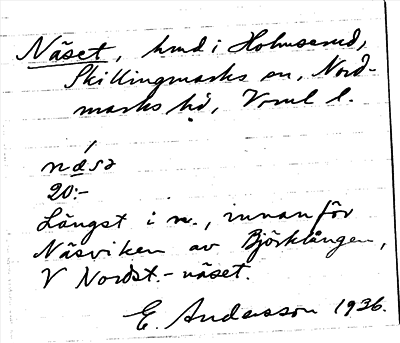 Näset, hmd i Holmserud,
Skillingmarks sn, Nord-
marks hd, Vrml l.
näsə
20:-
Längst i n., innanför
Näsviken av Björklången,
V Nordst.-näset.
E. Andersson 1936.